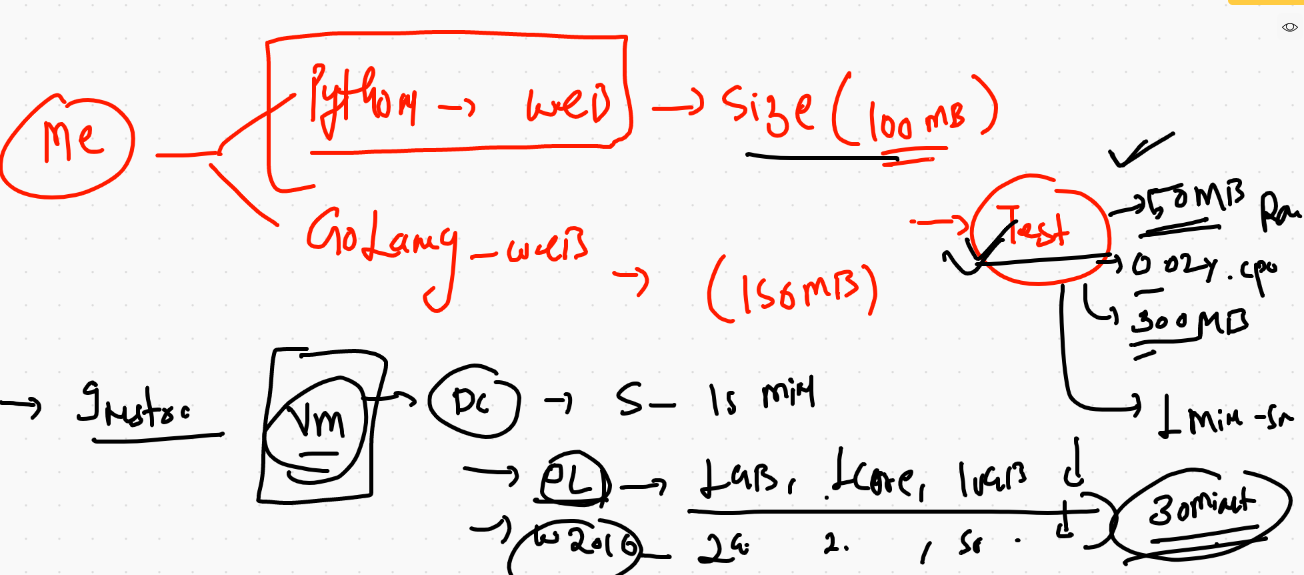 Me
Python → web → Size (100 MB)
GoLang - web → (150MB)
→ Test → 50MB Ram
→ 0.02%.cpu
→ 300MB
→ 1 Min
→
Vm → DC → 5 - 15 min
→ → 1GB, 1core, 10GB
→ W2016 - 2G. 2. ,
30minut